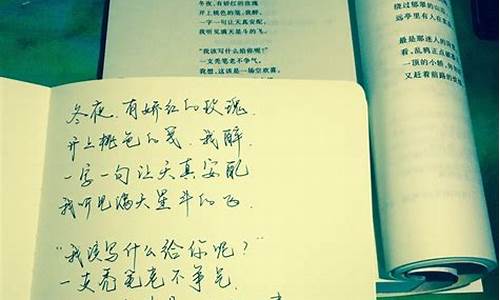 冬夜，有娇红的玫瑰
开上桃色的笺，我醉，
一字一句让天真安配，
我听见满天星斗的飞。
“我该写什么给你呢？”
一支秃笔老不争气，
我想，这该是一场空欢喜，
绕过郁翠的山
远亭里有人在
最是那迷人的
看，乱鸦正点破
一顶的小轿，
又赶着前路的
冬夜，有娇红的玫瑰，
开上桃色的笺，我醉，
一字一句让天真安配
我听见满天星斗的飞.
“我该写什么给你呢？”
一支秃笔老不争气.